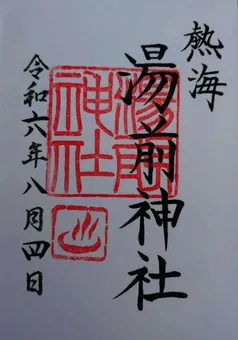 熱海
湯前神社
令和六年八月四日
湯前神社